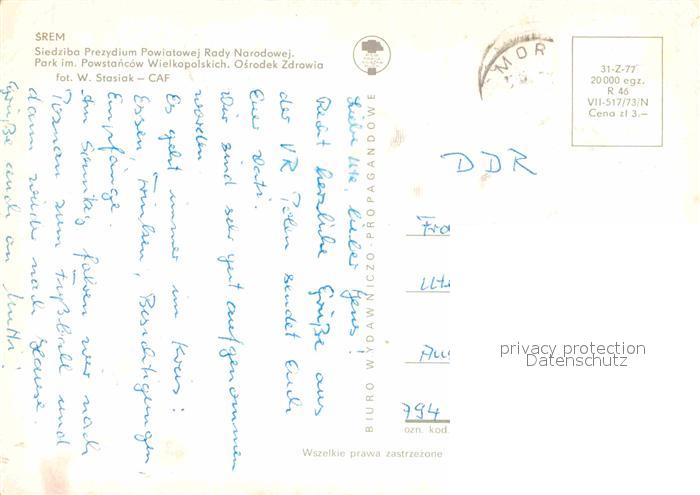 ŚREM
Siedziba Prezydium Powiatowej Rady Narodowej.
Park im. Powstańców Wielkopolskich. Ośrodek Zdrowia
fot. W. Stasiak — CAF
MOR
31-Z-77
20 000 egz.
R 46
VII-517/73/N
Cena zł 3.—
Liebe Ute, lieber Jens!
Recht herzliche Grüße aus
der VR Polen sendet Euch
Euer Vati.
Wir sind sehr gut aufgenommen
worden.
Es geht immer im Kreis:
Essen, Trinken, Besichtigungen,
Empfänge.
Am Sonntag fahren wir nach
Poznan zum Fußball und
dann wieder nach Hause.
Grüße auch an Mutti!
BIURO WYDAWNICZO-PROPAGANDOWE
DDR
Fra
Ute
794
ozn. kod.
Wszelkie prawa zastrzeżone
privacy protection
Datenschutz